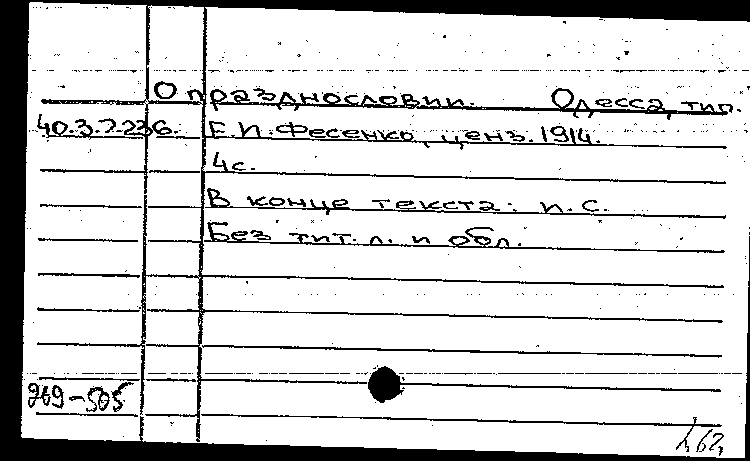 О празднословии. Одесса, тип.
40.3.2.236. Е.И. Фесенко, ценз. 1914.
4 с.
В конце текста: п. С.
Без тит. л. и обл.
969-505